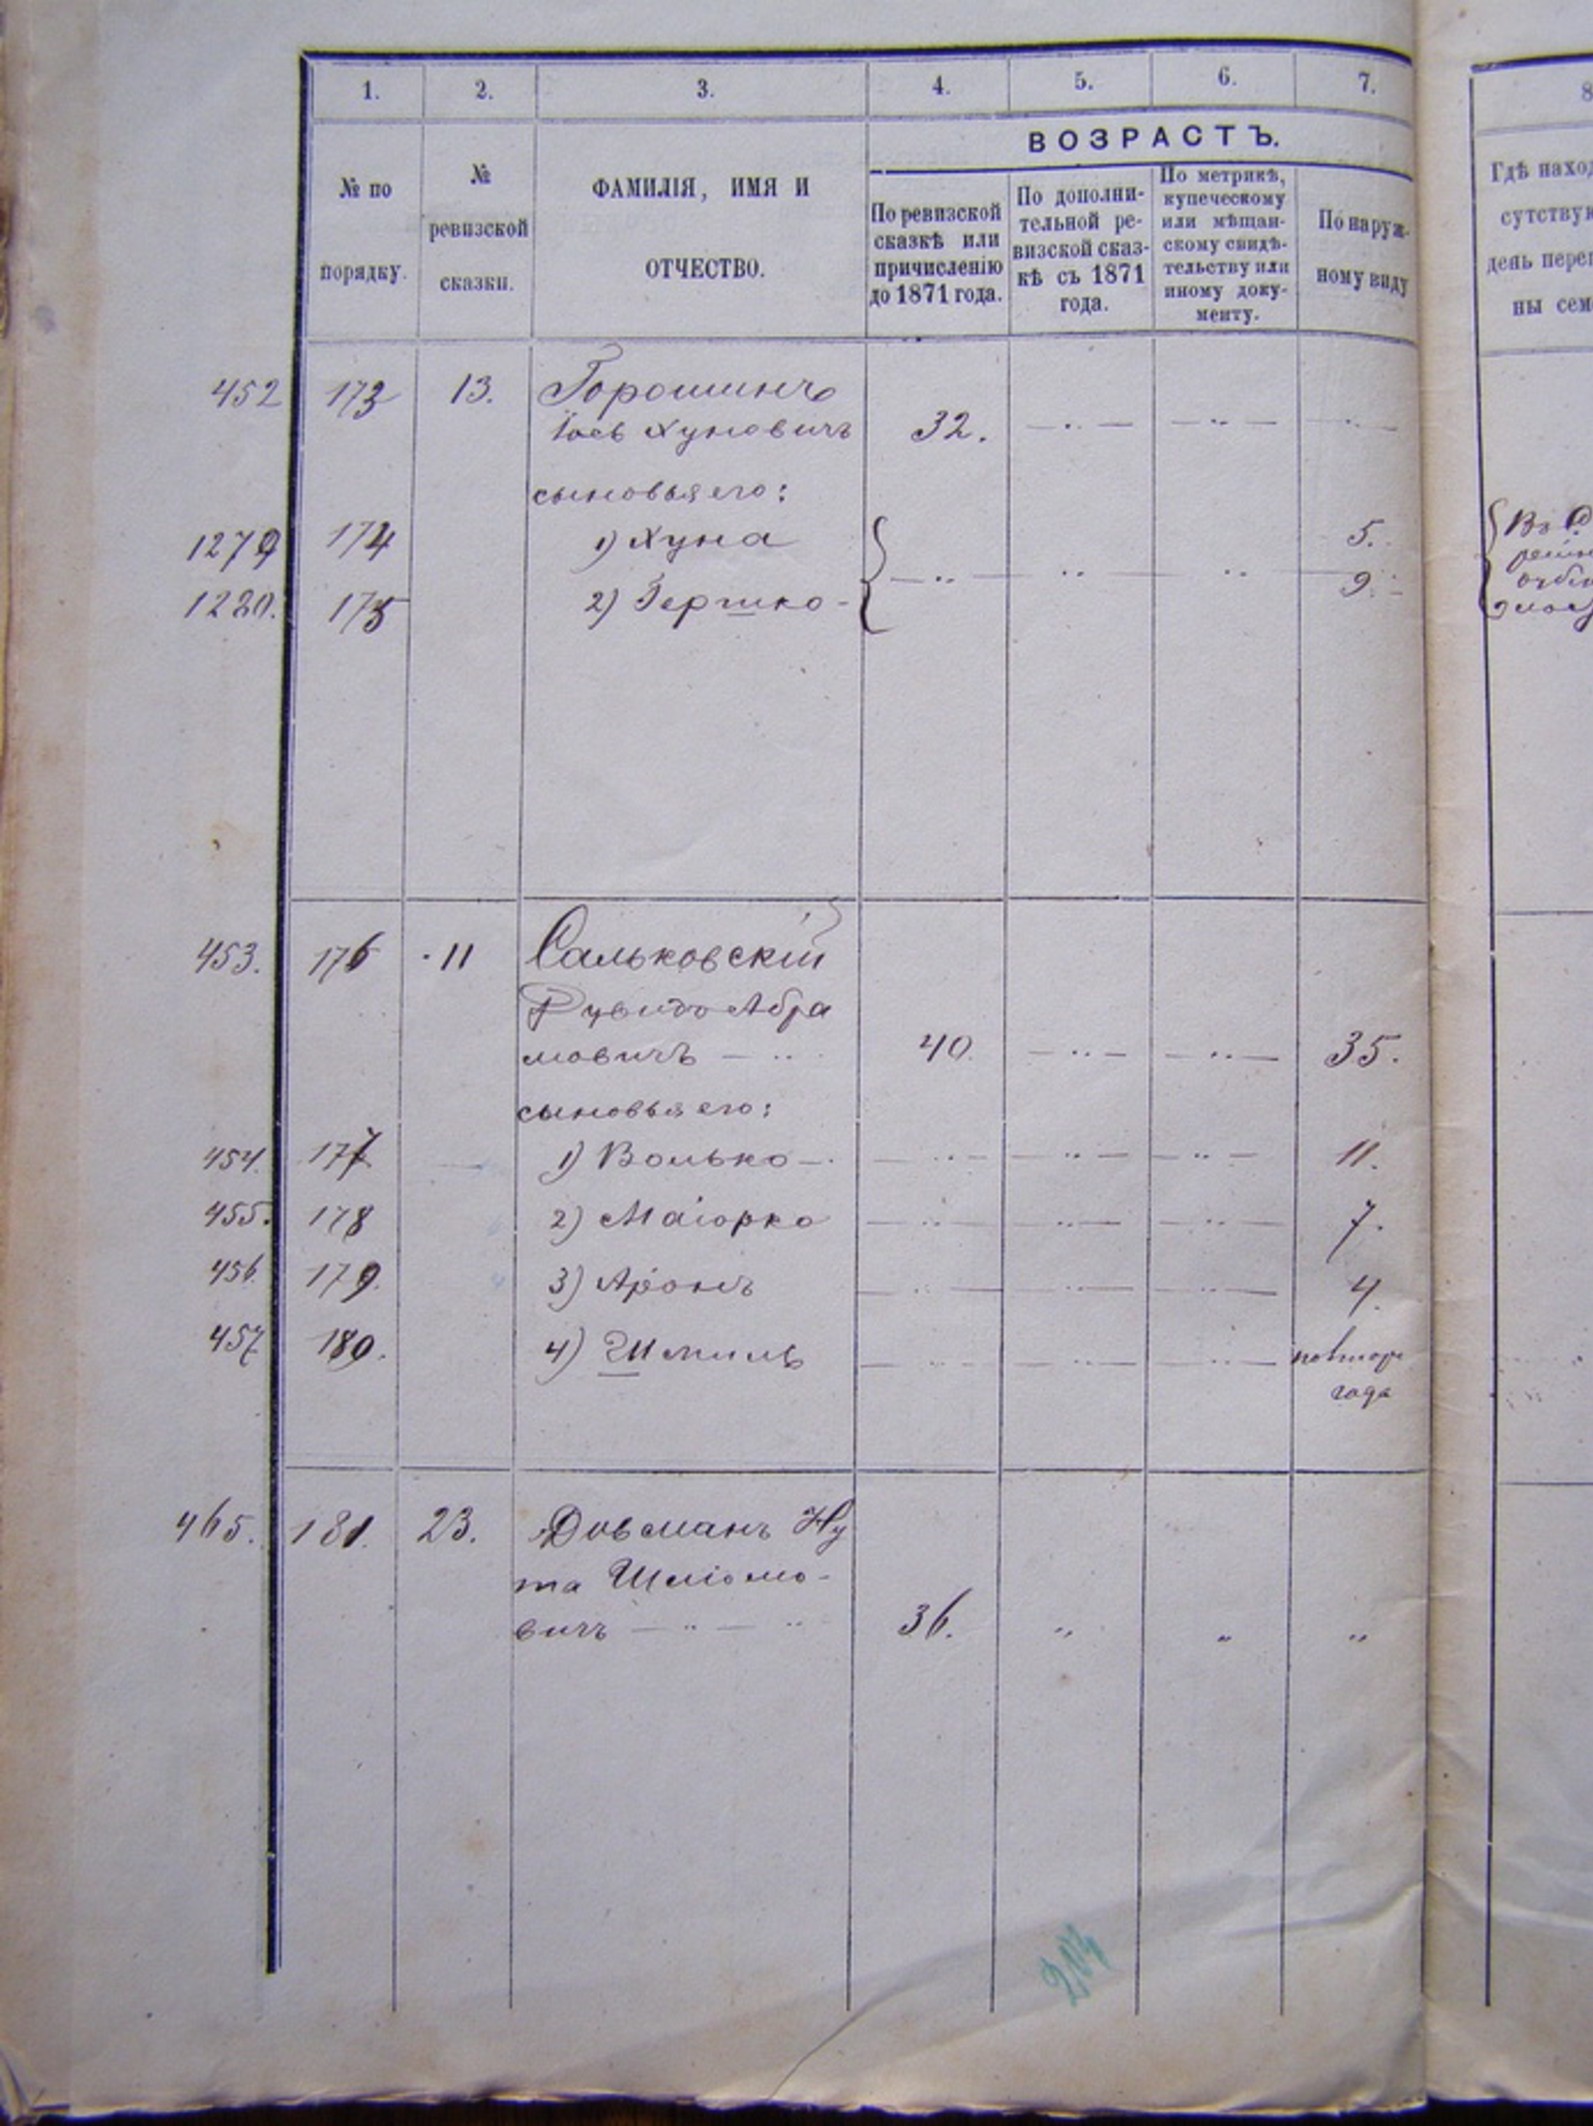 1. 2. 3. 4. 5. 6. 7. 8
ВОЗРАСТЪ.
№ по порядку.
№ ревизской сказки.
ФАМИЛІЯ, ИМЯ И
ОТЧЕСТВО.
По ревизской
сказкѣ или
причисленію
до 1871 года.
По дополни-
тельной ре-
визской сказ-
кѣ съ 1871
года.
По метрикѣ,
купеческому
или мѣщан-
скому свидѣ-
тельству или
иному доку-
менту.
По наруж-
ному виду
Гдѣ наход
сутствую
день
ны сем
452 173 13. Горошинъ
Іось Хуновичъ 32.
сыновья его:
1279 174 1) Хуна 5.
1280. 175 2) Гершко 9.
Въ
453. 176 11 Сальковскій
Рувидъ Абра
мовичъ 40. 35.
сыновья его:
454. 177 1) Волько 11.
455. 178 2) Маіорко 7.
456. 179. 3) Аронъ 4.
457 180. 4) Шмиль полтора
года
465. 181. 23. Довманъ Ну
та Шліомо-
вичъ 36.